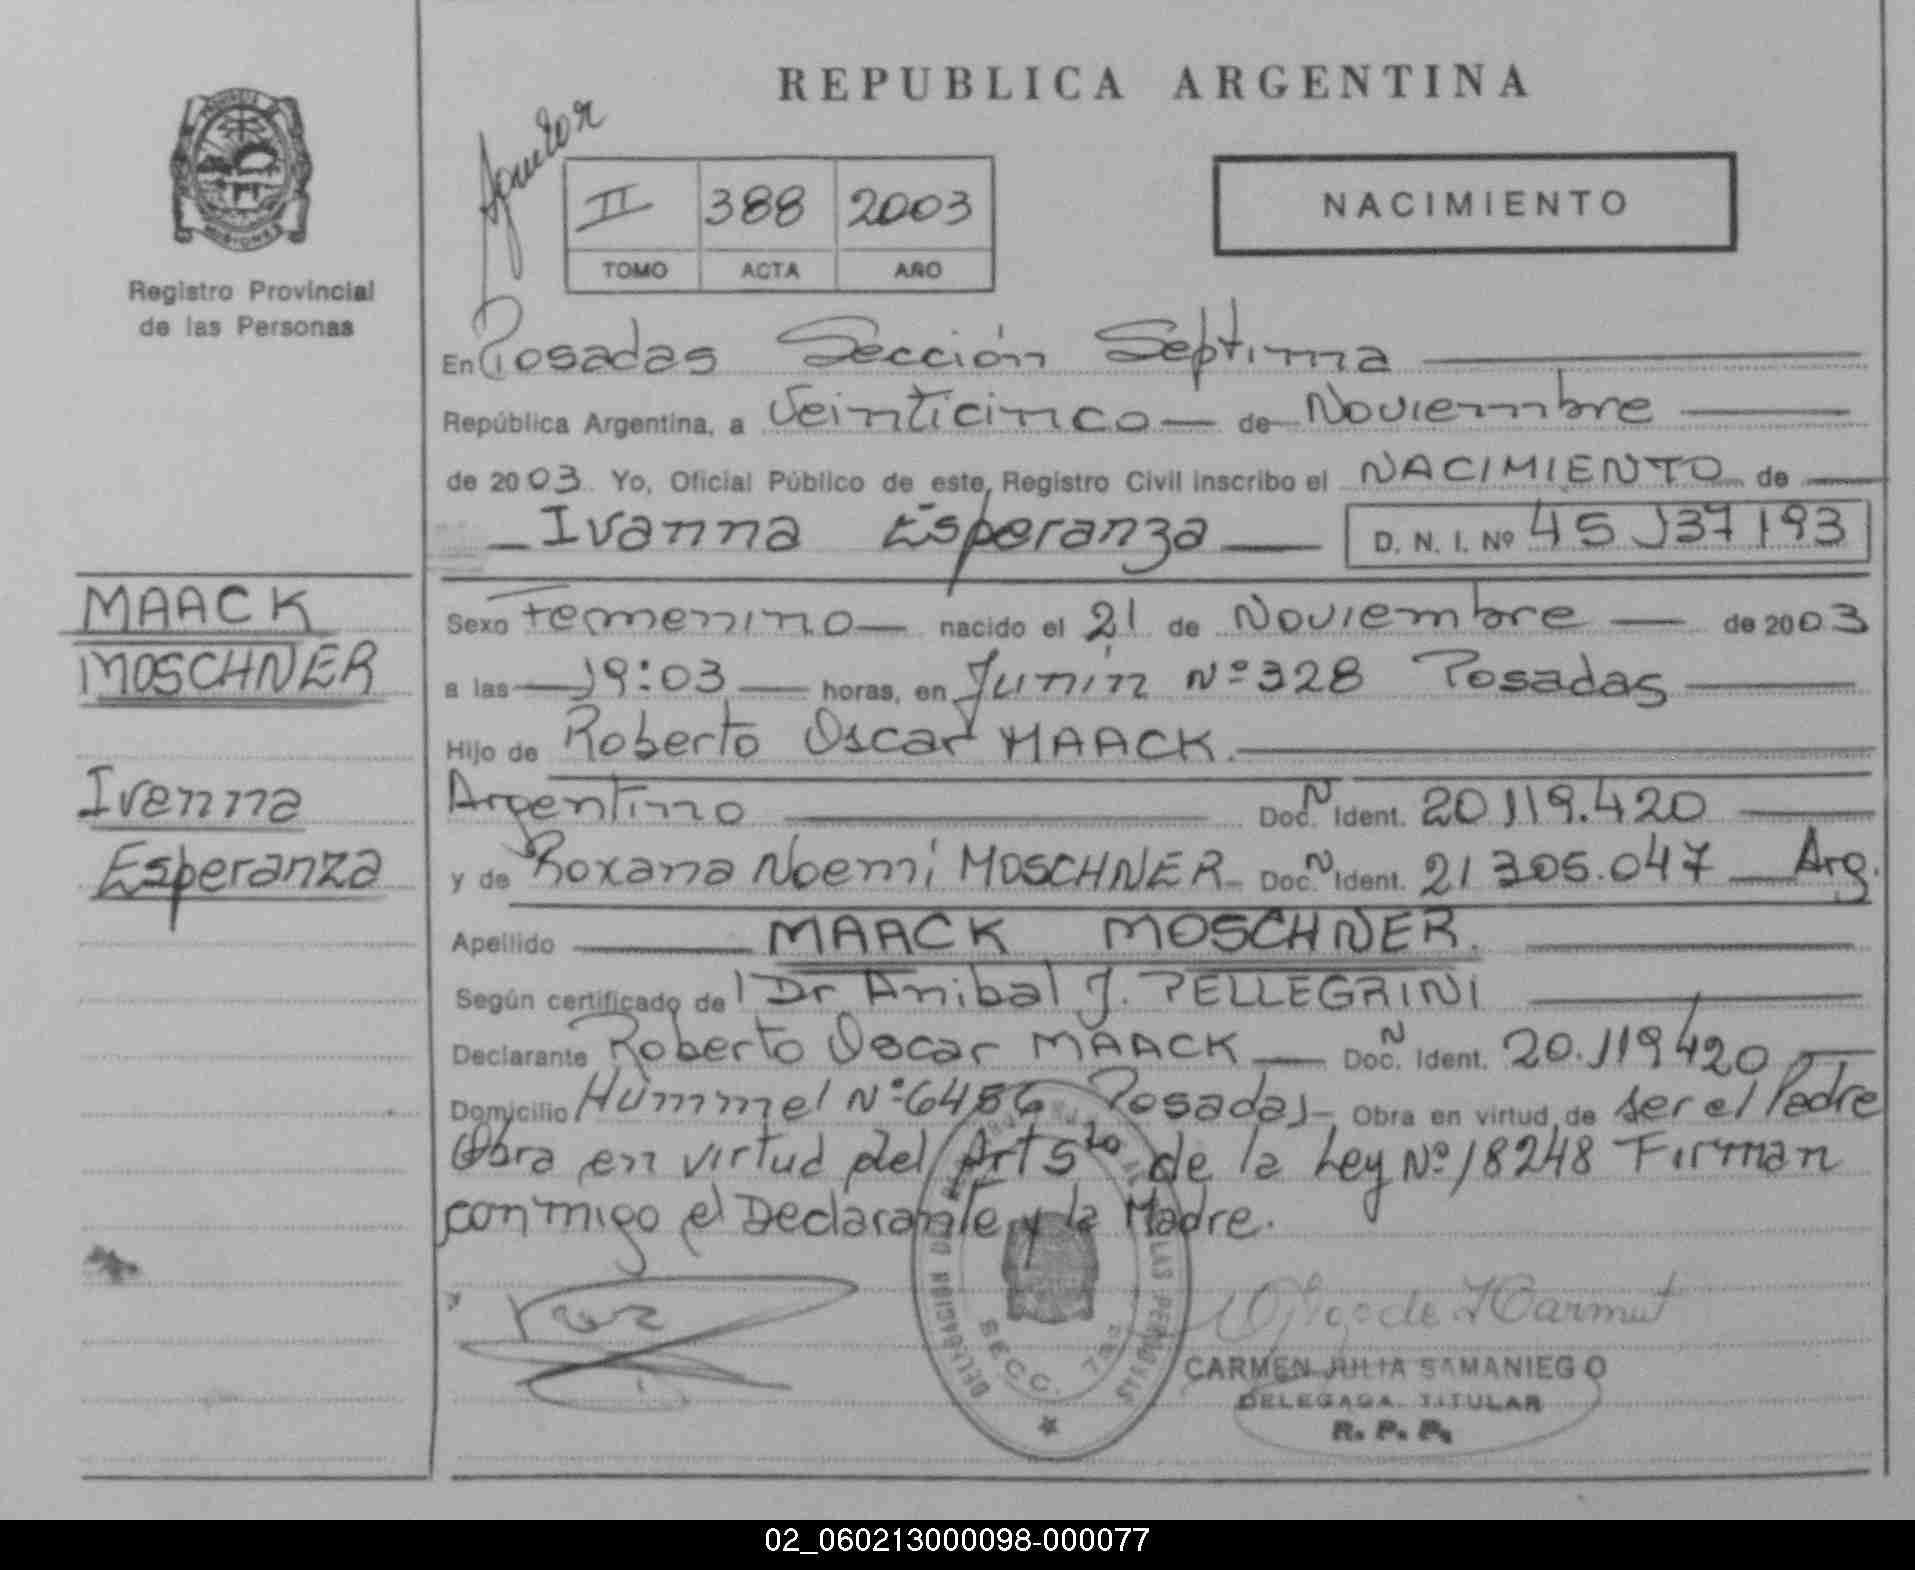 REPUBLICA ARGENTINA
II 388 2003
TOMO ACTA AÑO
NACIMIENTO
MISIONES
Registro Provincial
de las Personas
En Posadas Sección Septima
República Argentina, a Veinticinco de Noviembre
de 2003 Yo, Oficial Público de este Registro Civil inscribo el NACIMIENTO de
Ivanna Esperanza D. N. I. Nº 45 137 193
MAACK
MOSCHNER
Ivanna
Esperanza
Sexo Femenino nacido el 21 de Noviembre de 2003
a las 19:03 horas, en Junín Nº 328 Posadas
Hijo de Roberto Oscar MAACK.
Argentino Doc. N Ident. 20 119.420
y de Roxana Noemí MOSCHNER Doc. N Ident. 21 305.047 Arg.
Apellido MAACK MOSCHNER.
Según certificado de Dr Anibal J. PELLEGRINI
Declarante Roberto Oscar MAACK Doc. N Ident. 20.119420
Domicilio Hummel Nº 6486 Posadas Obra en virtud de ser el Padre
Obra en virtud del Art 5to de la Ley Nº 18248 Firman
conmigo el Declarante y la Madre.
DELEGACION
LAS PERSONAS
SECC. 7ma
CARMEN JULIA SAMANIEGO
DELEGADA TITULAR
R. P. P.
02_060213000098-000077